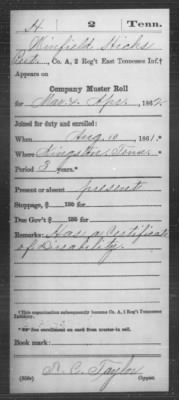 H. 2 Tenn.
Winfield Hicks
Pvt., Co. A, 2 Reg't East Tennessee Inf.†
Appears on
Company Muster Roll
for Mar & Apr, 1862.
Joined for duty and enrolled:
When Aug. 10, 1861.*
Where Kingston, Tenn.*
Period 3 years.*
Present or absent present
Stoppage, $ 100 for
Due Gov't $ 100 for
Remarks: Has a Certificate
of Disability.
†This organization subsequently became Co. A, 1 Reg't Tennessee
Infantry.
*See enrollment on card from muster-in roll.
Book mark:
(358c) Copyist.